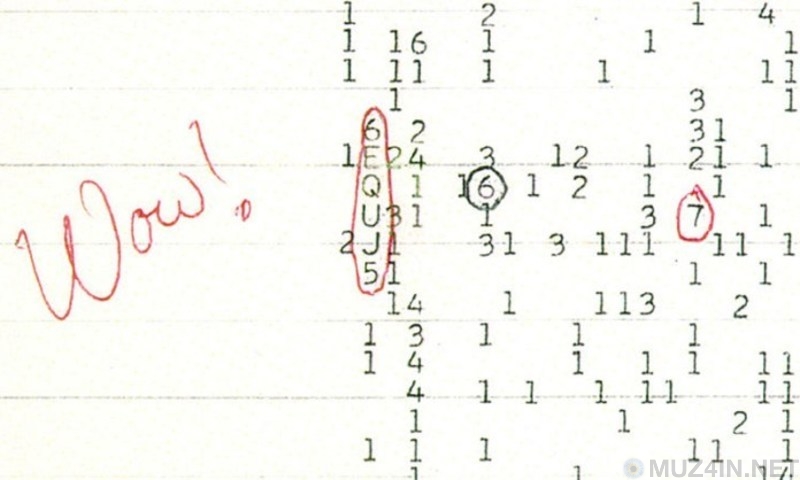 1 2 1 4
1 16 1 1 1
1 11 1 1 11
1 3 1
6 2 31
1 E 24 3 12 1 21 1
Q 1 16 1 2 1 1
Wow!
U 31 1 3 7 1
2 J 1 31 3 111 11 1
5 1 1 1
14 1 113 2
1 3 1 1 1
1 4 1 1 1 11
4 1 1 1 11 11
1 1 2 1
1 1 1 11 1
1 1 14
MUZ4IN.NET